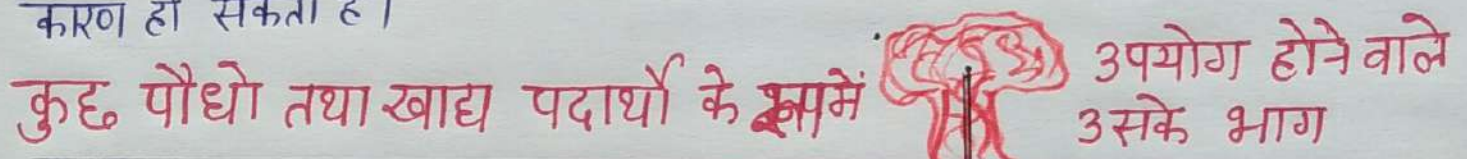 कारण हो सकता है।
कुछ पौधो तथा खाद्य पदार्थो के रूप में उपयोग होने वाले
उसके भाग